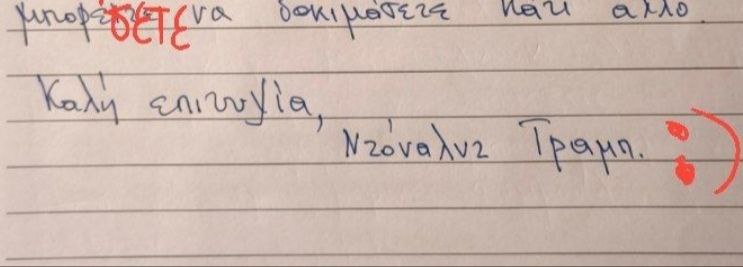 μπορείτε να δοκιμάσετε κάτι άλλο.
ΕΕΤΕ
Καλή επιτυχία,
Ντόναλντ Τραμπ. :)